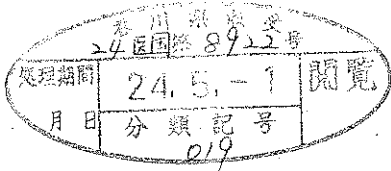 香川県収受
24医国第8922号
処理期間
24.5.-1
閲覧
月日
分類記号
019